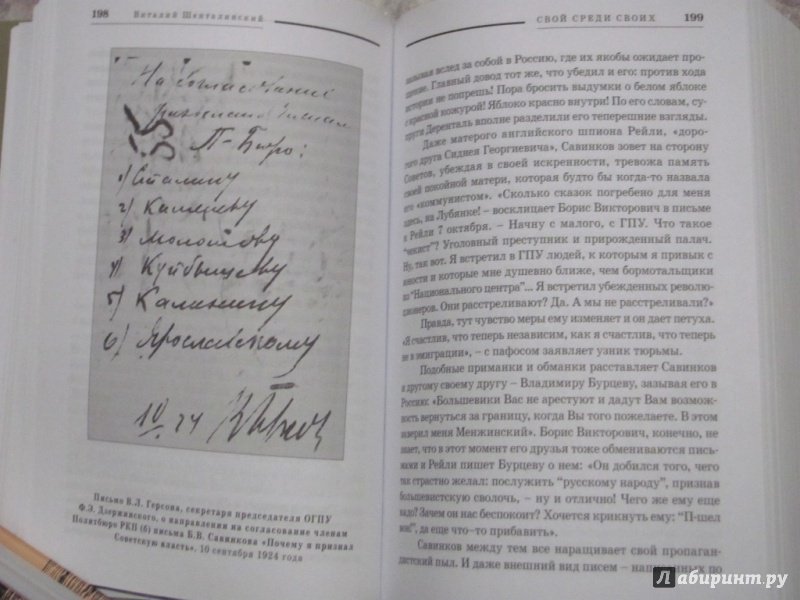 198 Виталий Шенталинский
На согласование
П-Бюро:
1) Сталину
2) Каменеву
3) Молотову
4) Куйбышеву
5) Калинину
6) Ярославскому
10/IX 24
Письмо В.Л. Герсона, секретаря председателя ОГПУ
Ф.Э. Дзержинского, о направлении на согласование членам
Политбюро РКП (б) письма Б.В. Савинкова «Почему я признал
Советскую власть», 10 сентября 1924 года
СВОЙ СРЕДИ СВОИХ 199
зывая вслед за собой в Россию, где их якобы ожидает про-
щение. Главный довод тот же, что убедил и его: против хода
истории не попрешь! Пора бросить выдумки о белом яблоке
с красной кожурой! Яблоко красно внутри! По его словам, су-
пруги Деренталь вполне разделили его теперешние взгляды.
Даже матерого английского шпиона Рейли, «доро-
гого друга Сиднея Георгиевича», Савинков зовет на сторону
Советов, убеждая в своей искренности, тревожа память
своей покойной матери, которая будто бы когда-то назвала
его «коммунистом». «Сколько сказок погребено для меня
здесь, на Лубянке! – восклицает Борис Викторович в письме
к Рейли 7 октября. – Начну с малого, с ГПУ. Что такое
"чекист"? Уголовный преступник и прирожденный палач.
Ну, так вот. Я встретил в ГПУ людей, к которым я привык с
юности и которые мне душевно ближе, чем бормотальщики
из "Национального центра"... Я встретил убежденных револю-
ционеров. Они расстреливают? Да. А мы не расстреливали?»
Правда, тут чувство меры ему изменяет и он дает петуха.
«Я счастлив, что теперь независим, как я счастлив, что теперь
не в эмиграции», – с пафосом заявляет узник тюрьмы.
Подобные приманки и обманки расставляет Савинков
и другому своему другу – Владимиру Бурцеву, зазывая его в
Россию: «Большевики Вас не арестуют и дадут Вам возмож-
ность вернуться за границу, когда Вы того пожелаете. В этом
заверил меня Менжинский». Борис Викторович, конечно, не
знает, что в этот момент его друзья тоже обмениваются пись-
мами и Рейли пишет Бурцеву о нем: «Он добился того, чего
так страстно желал: послужить "русскому народу", признав
большевистскую сволочь, – ну и отлично! Чего же ему еще
надо? Зачем он нас беспокоит? Хочется крикнуть ему: "П-шел
вон!", да еще что-то прибавить».
Савинков между тем все наращивает свой пропаган-
дистский пыл. И даже внешний вид писем – по
Лабиринт.ру